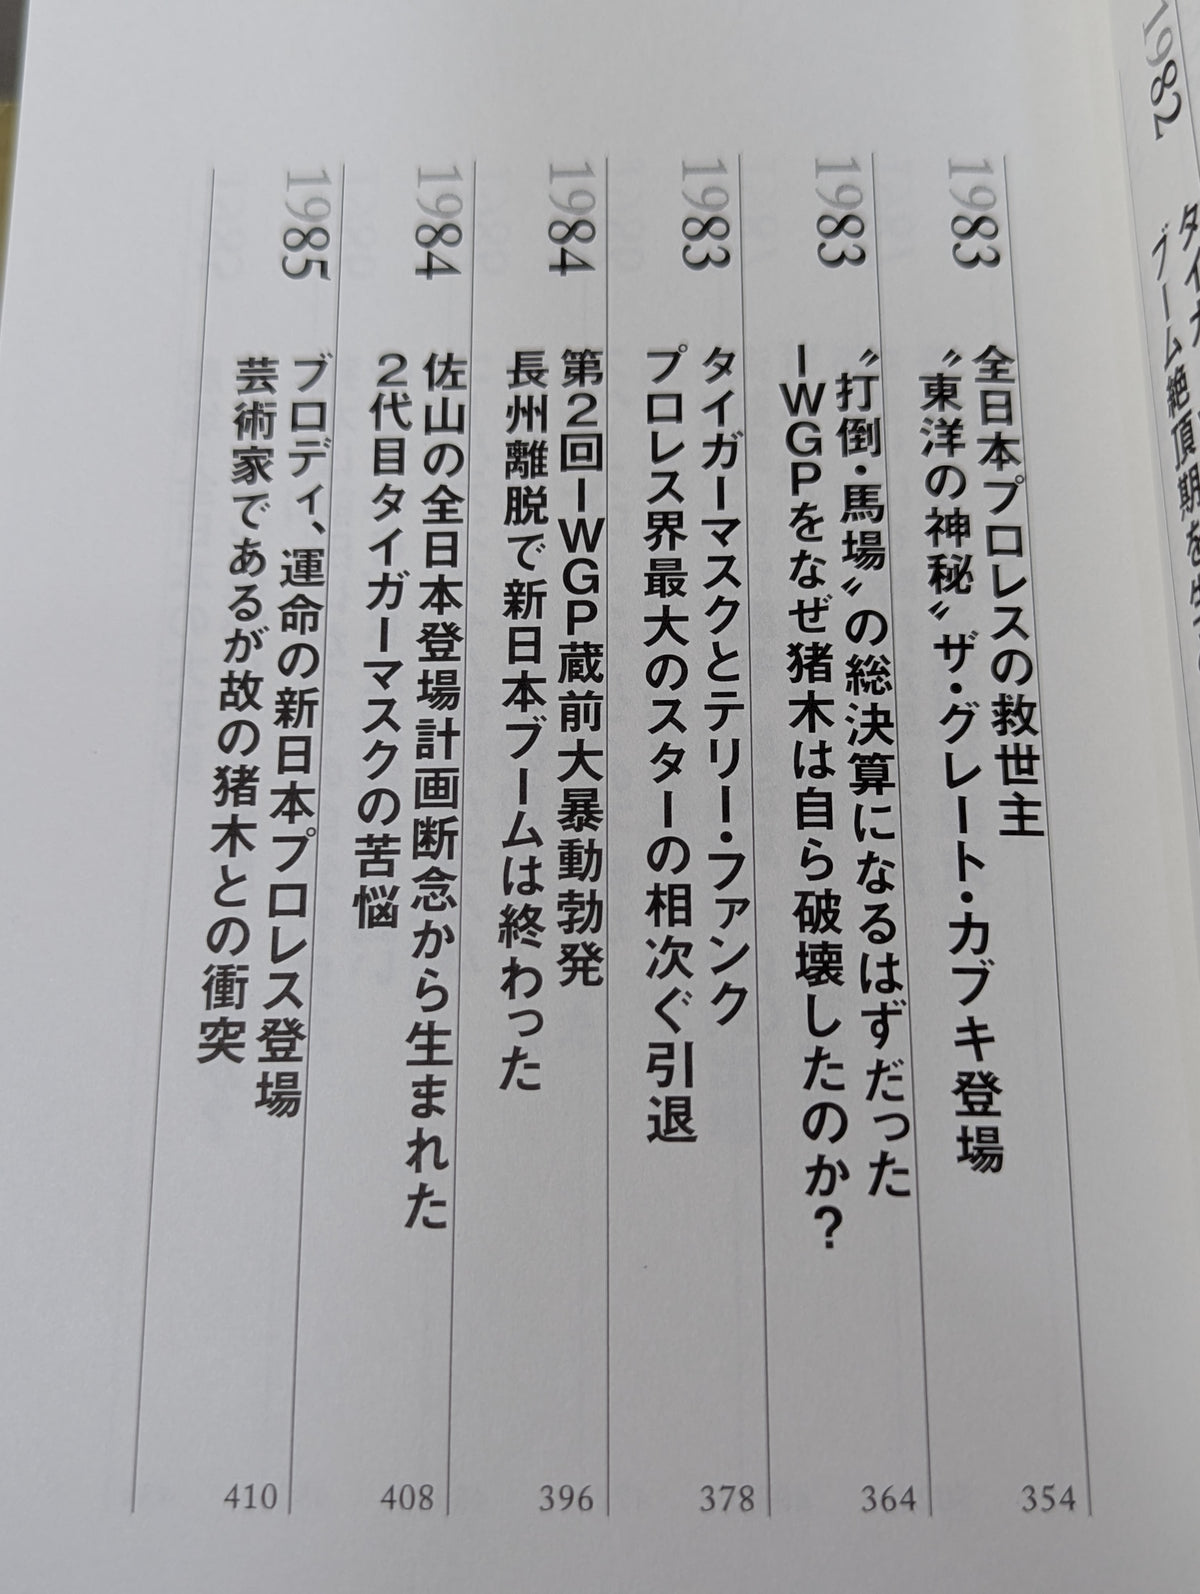 1982
1983
全日本プロレスの救世主
〝東洋の神秘〟ザ・グレート・カブキ登場
354
1983
〝打倒・馬場〟の総決算になるはずだった
IWGPをなぜ猪木は自ら破壊したのか？
364
1983
タイガーマスクとテリー・ファンク
プロレス界最大のスターの相次ぐ引退
378
1984
第2回IWGP蔵前大暴動勃発
長州離脱で新日本ブームは終わった
396
1984
佐山の全日本登場計画断念から生まれた
2代目タイガーマスクの苦悩
408
1985
ブロディ、運命の新日本プロレス登場
芸術家であるが故の猪木との衝突
410